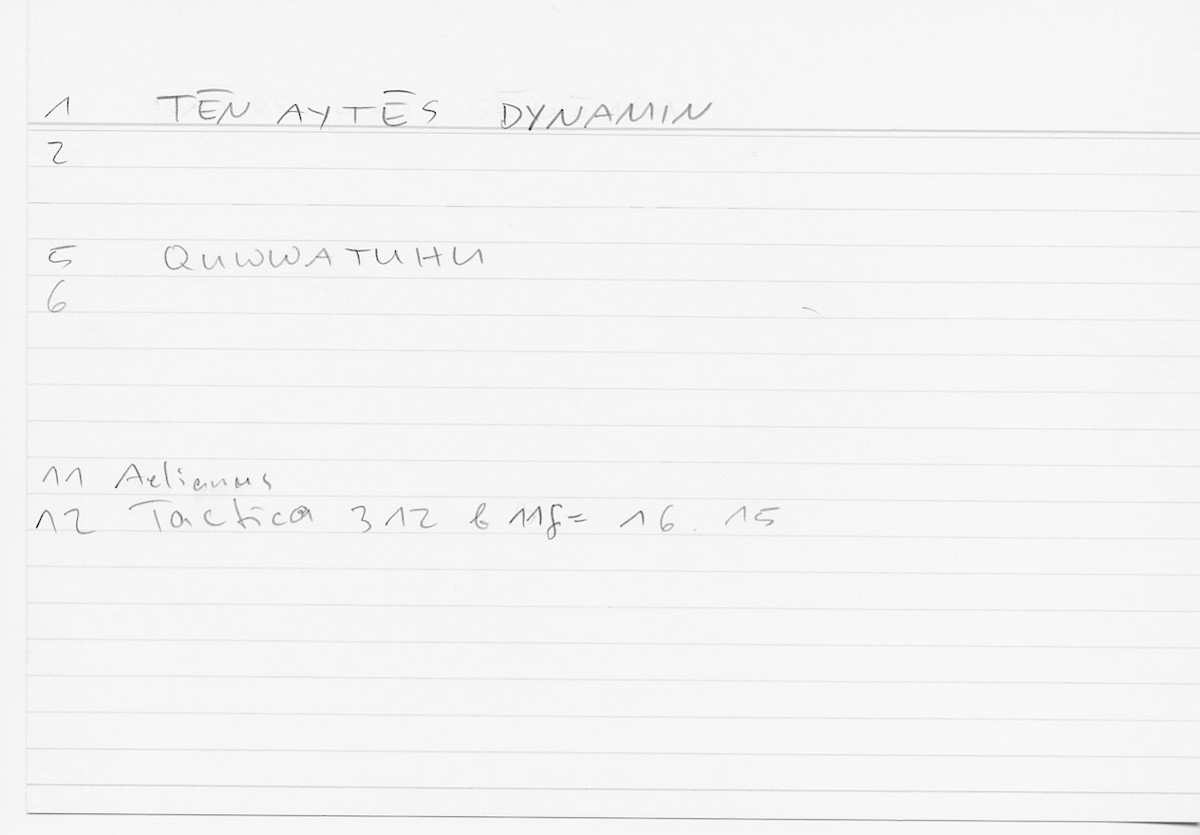 1 TĒN AYTĒS DYNAMIN
2
5 QUWWATUHU
6
11 Aelianus
12 Tactica 312 b 11f = 16. 15